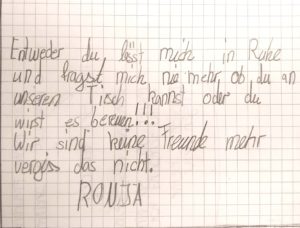 Entweder du lässt mich in Ruhe
und fragst mich nie mehr ob du an
unseren Tisch kannst oder du
wirst es bereuen!!!
Wir sind keine Freunde mehr
vergiss das nicht.
RONJA